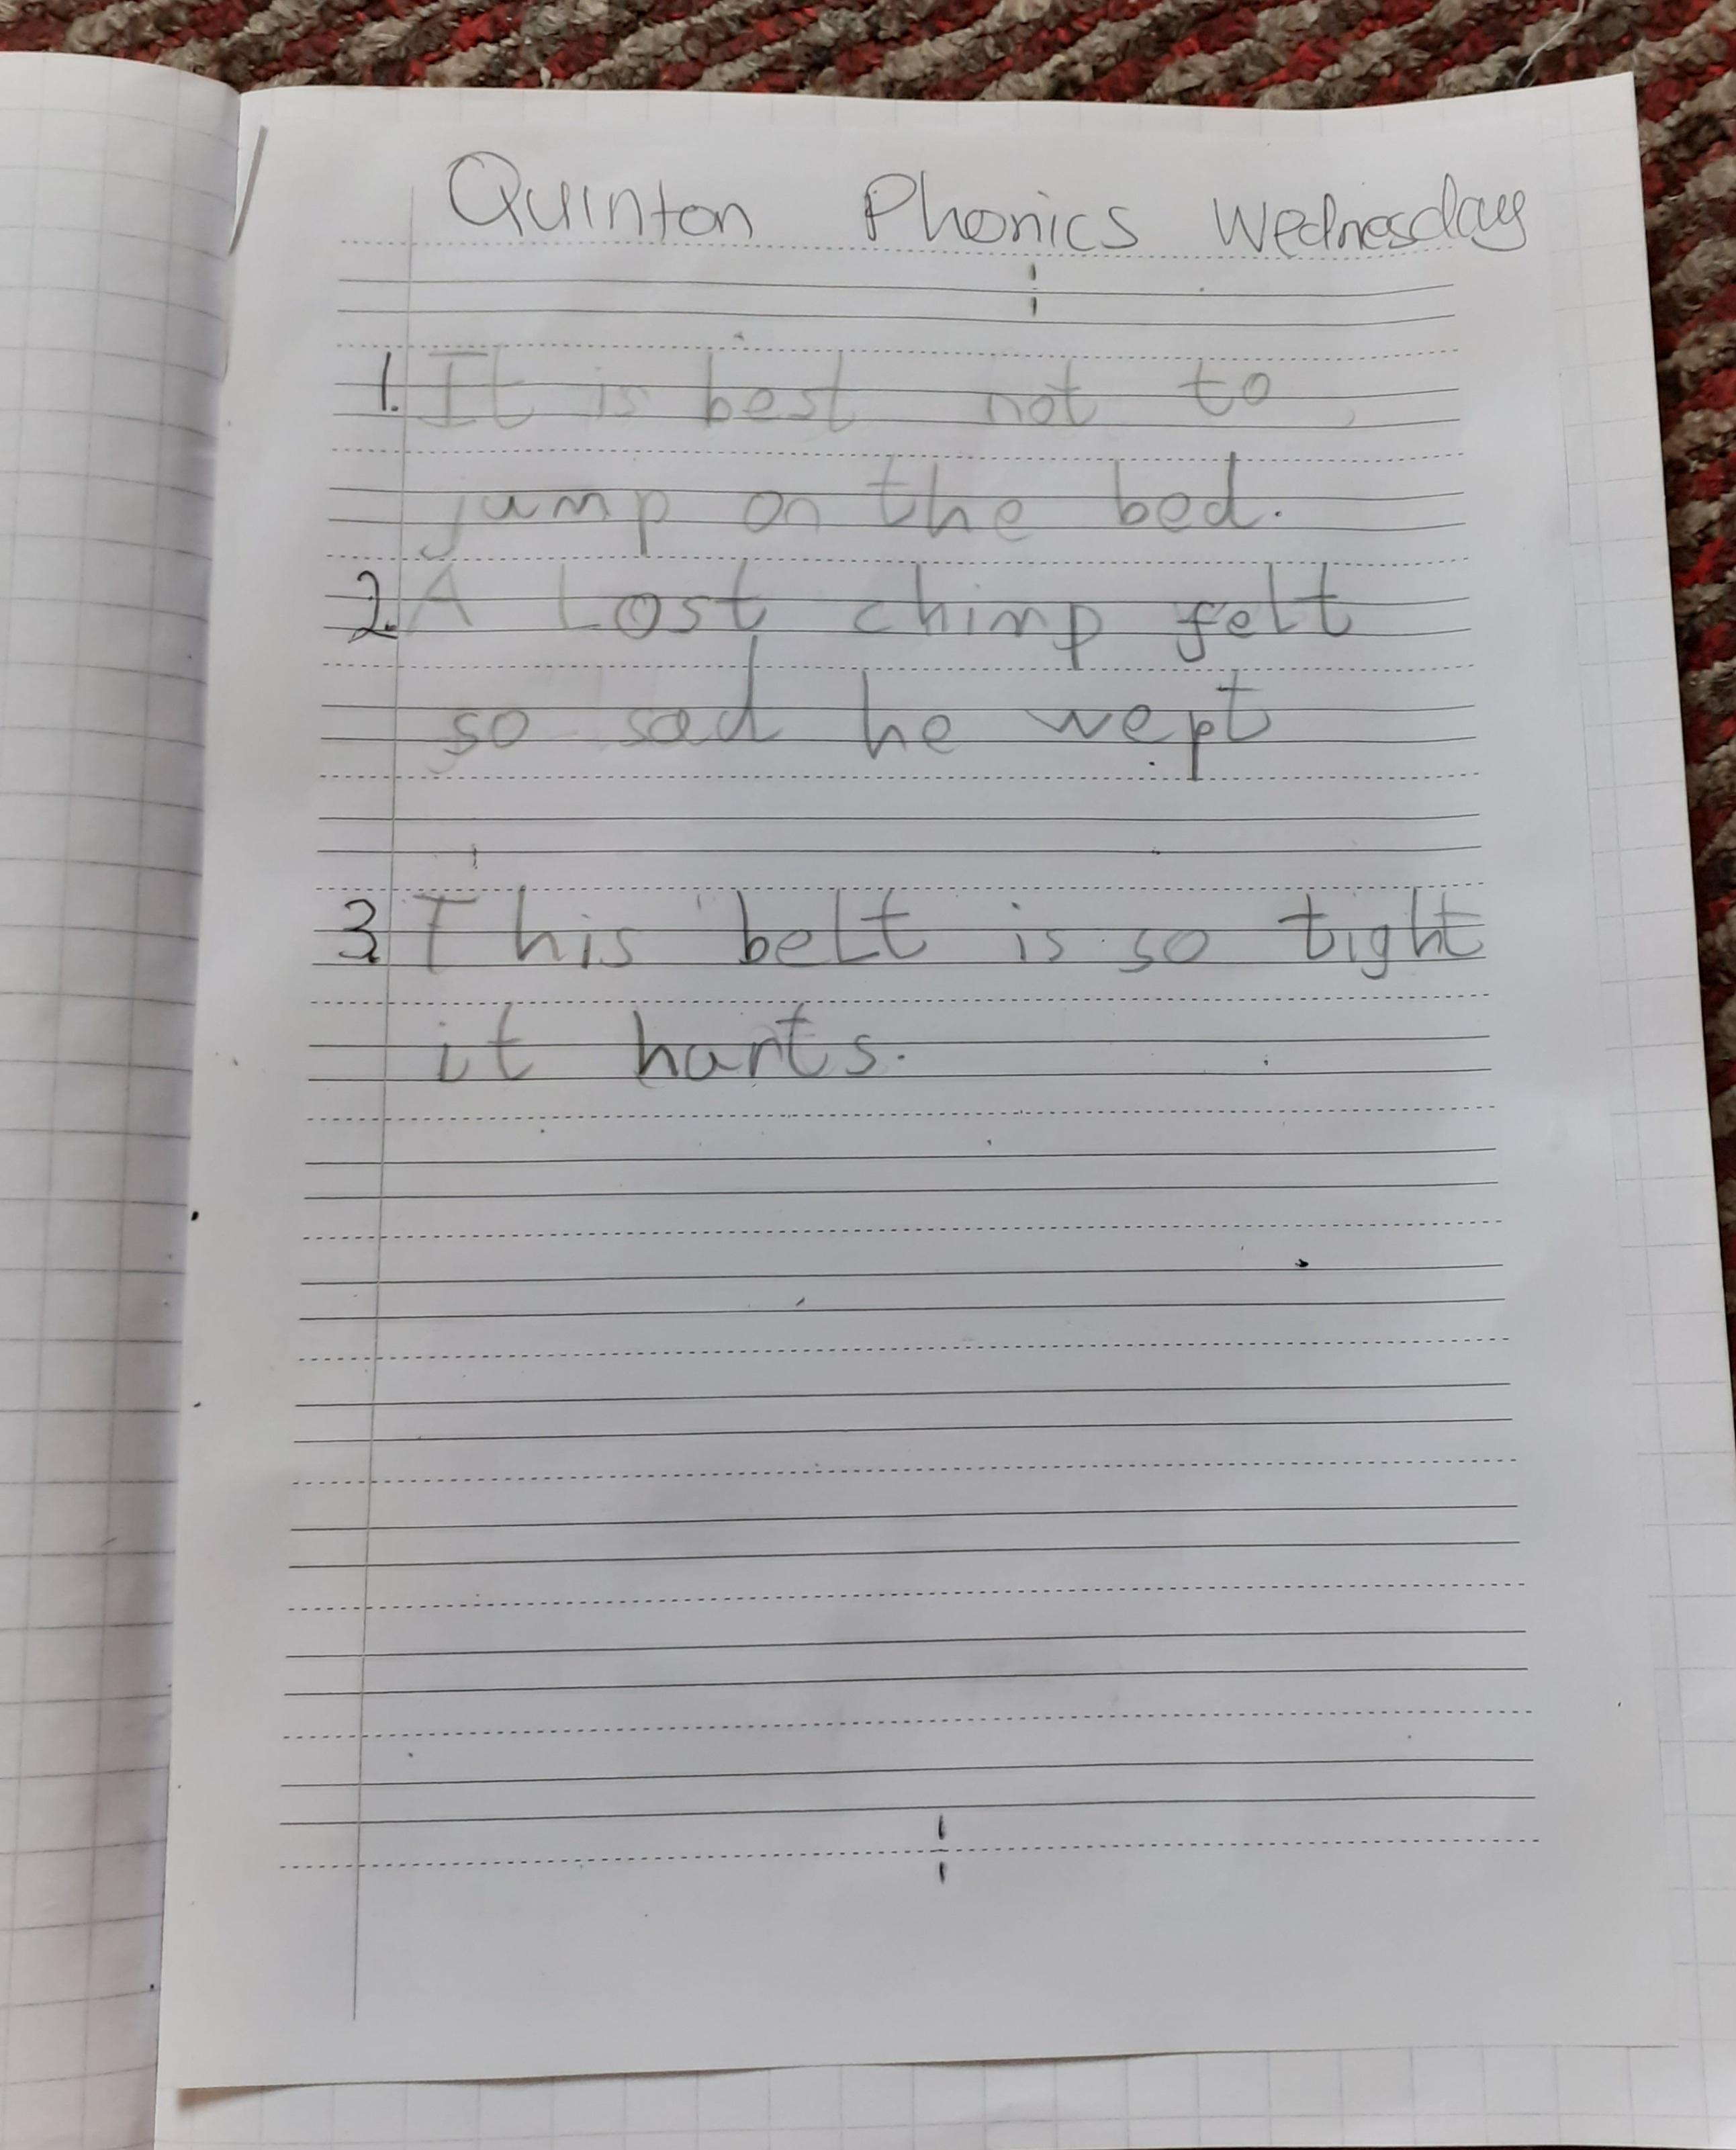 Quinton Phonics Wednesday
1. It is best not to
jump on the bed.
2. A Lost chimp felt
so sad he wept
3. This belt is so tight
it harts.